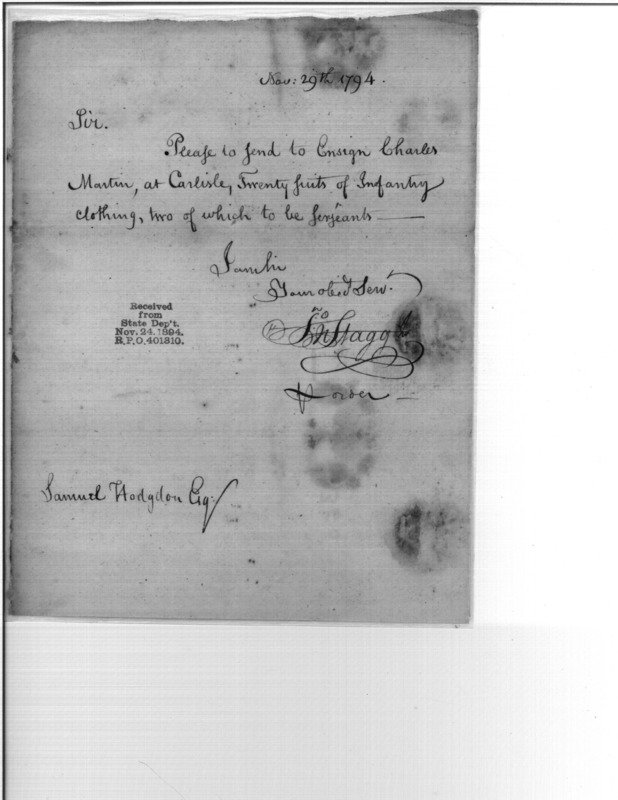 Nov: 29th 1794.
Sir.
Please to send to Ensign Charles
Martin, at Carlisle, Twenty suits of Infantry
clothing, two of which to be Serjeants —
I am Sir
Your obedt Servt
Jno Stagg
Received
from
State Dep't.
Nov. 24. 1894.
R.P.O. 401310.
order —
Samuel Hodgdon Esqr